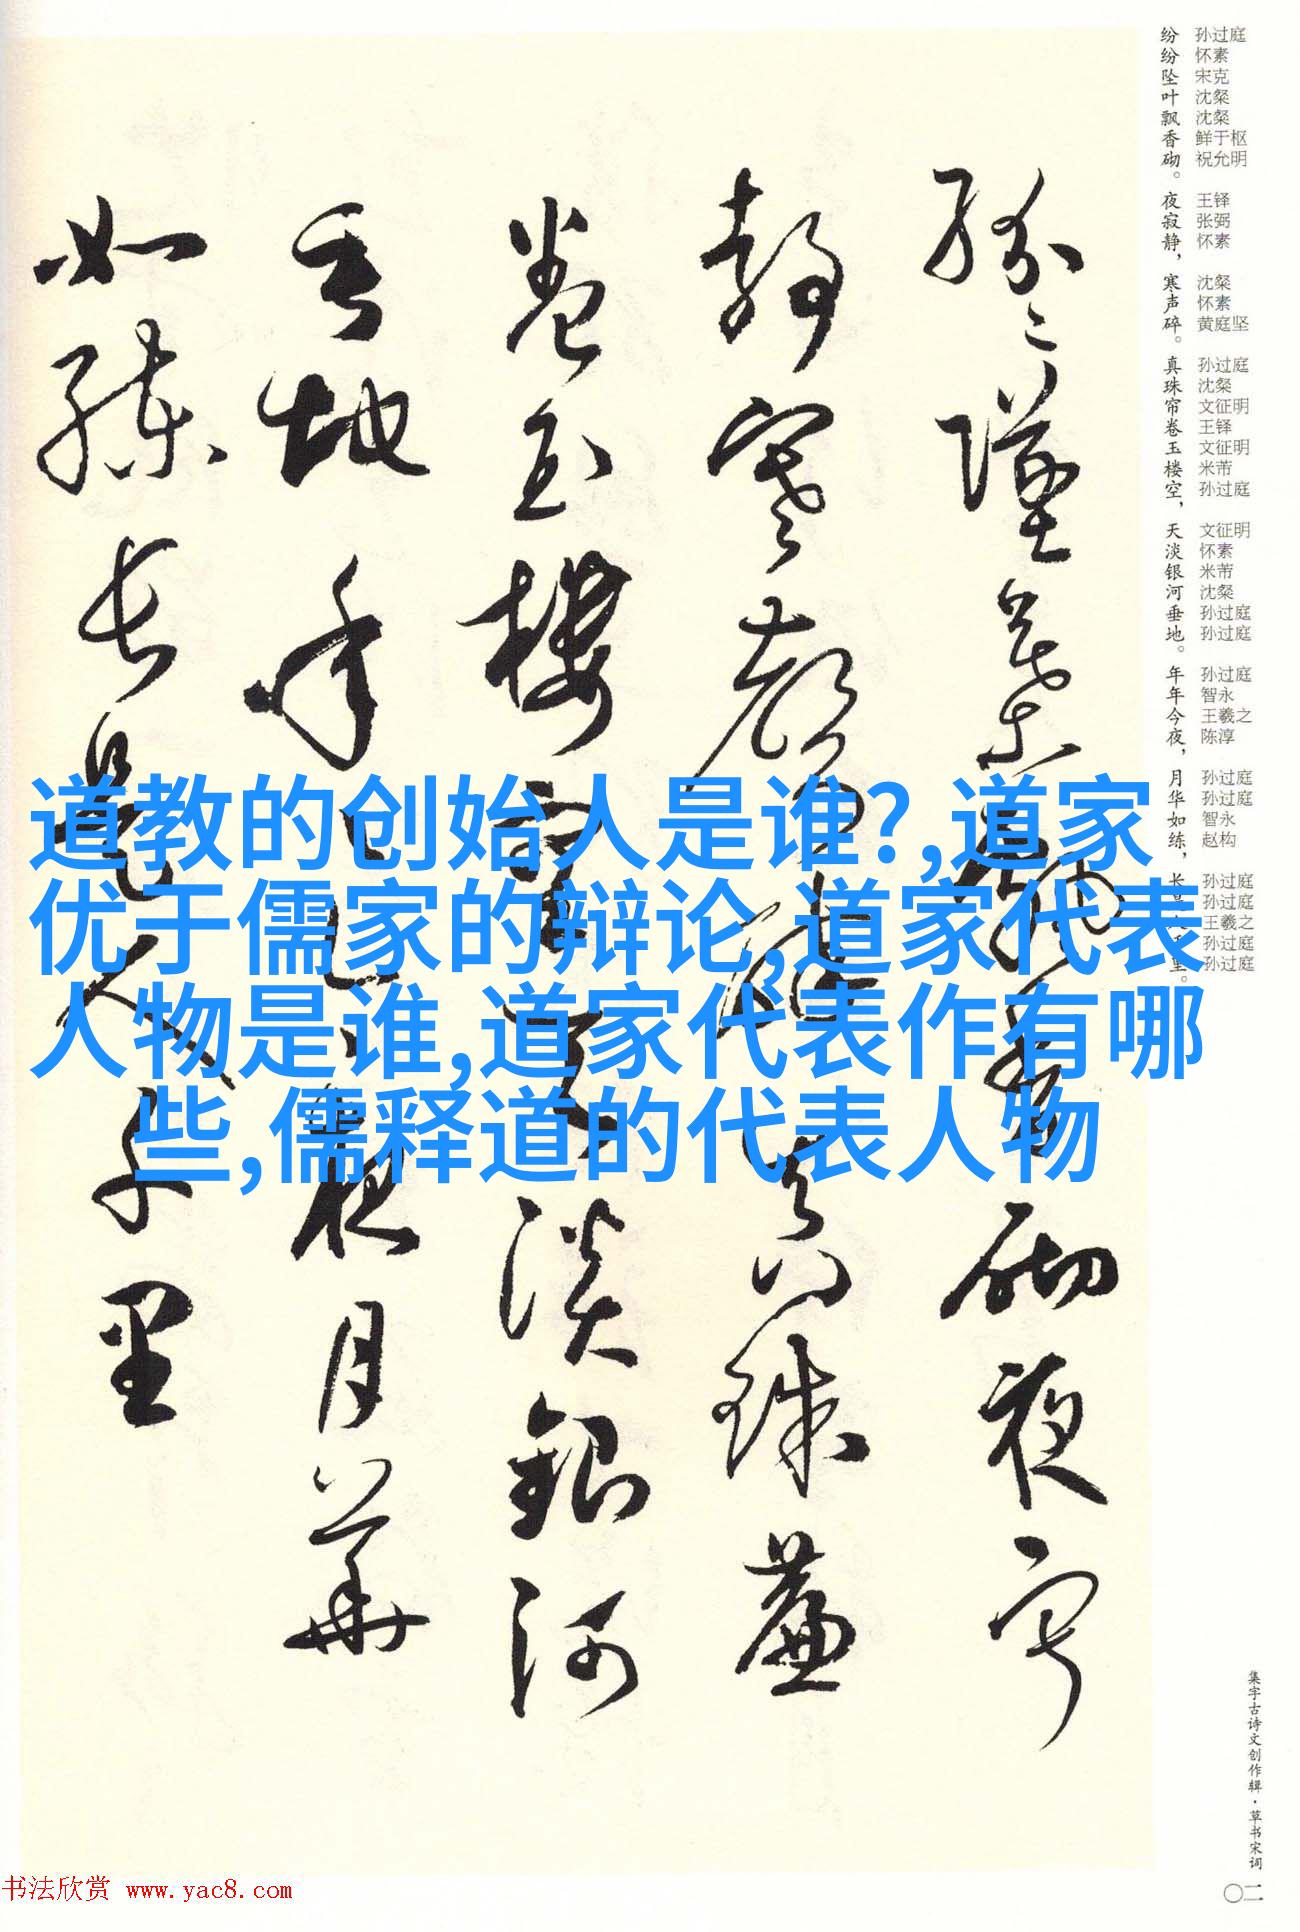 纷纷坠叶飘香砌。夜寂静，寒声碎。真珠帘卷玉楼空，天淡银河垂地。年年今夜，月华如练，长
里。
孙过庭
怀素
宋克
沈粲
沈粲
鲜于枢
祝允明
王铎
张弼
怀素
沈粲
怀素
黄庭坚
孙过庭
沈粲
文征明
王铎
文征明
米芾
孙过庭
文征明
怀素
米芾
沈粲
孙过庭
孙过庭
孙过庭
智永
王羲之
陈淳
孙过庭
孙过庭
智永
赵构
孙过庭
孙过庭
王羲之
孙过庭
孙过庭
纷〻坠叶飘香砌夜寂
静寒声碎真珠帘
卷玉楼空天淡银河
垂地年〻今夜月华
如练长是人千里
道教的创始人是谁?,道家
优于儒家的辩论,道家代表
人物是谁,道家代表作有哪
些,儒释道的代表人物
集字古诗文创作辑·草书宋词
〇二
书法欣赏 www.yac8.com